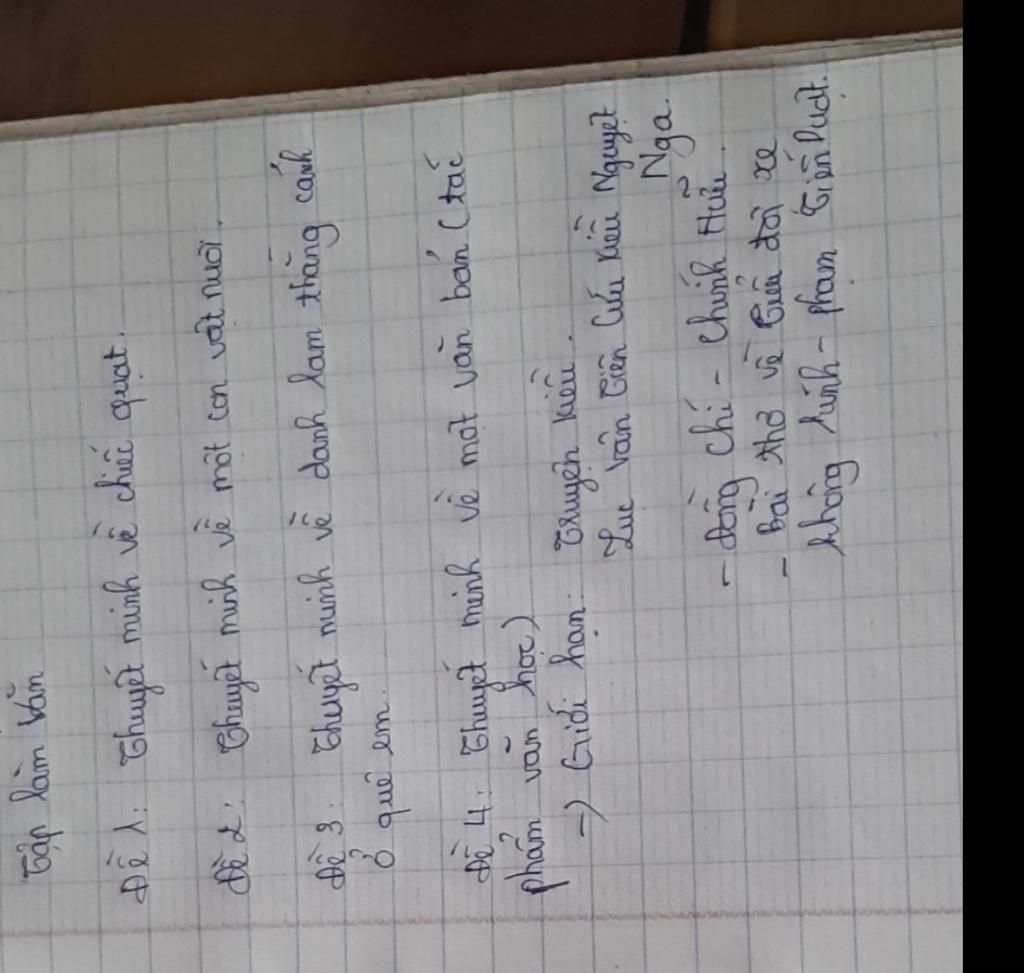 Tập làm văn
Đề 1: Thuyết minh về chiếc quạt.
Đề 2: Thuyết minh về một con vật nuôi.
Đề 3: Thuyết minh về danh lam thắng cảnh
ở quê em.
Đề 4: Thuyết minh về một văn bản (tác
phẩm văn học)
-> Giới hạn: Truyện Kiều.
Lục Vân Tiên cứu Kiều Nguyệt
Nga.
- Đồng chí - Chính Hữu.
- Bài thơ về tiểu đội xe
không kính - Phạm Tiến Duật.